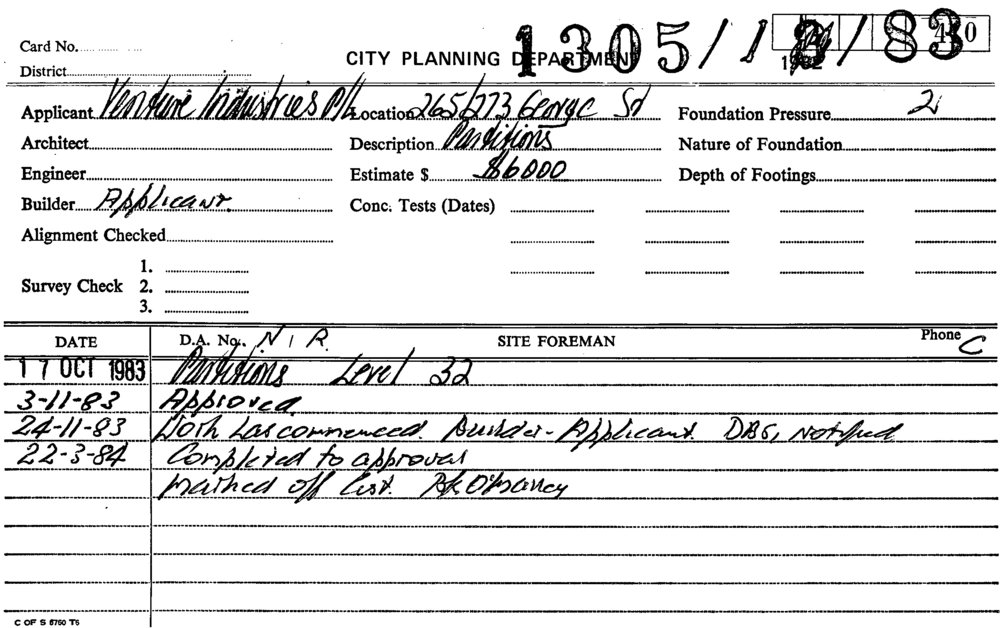 Card No.
CITY PLANNING DEPARTMENT
1305/ /83
District
Applicant Venture Industries P/L Location 265/273 George St Foundation Pressure 2
Architect Description Partitions Nature of Foundation
Engineer Estimate $ $6000 Depth of Footings
Builder Applicant. Conc. Tests (Dates)
Alignment Checked
1.
Survey Check 2.
3.
DATE D.A. No. N I R. SITE FOREMAN Phone C
17 OCT 1983 Partitions Level 32
3-11-83 Approved.
24-11-83 Work has commenced. Builder - Applicant. notified
22-3-84 Completed to approval
marked off list.
C OF S 5750 T5